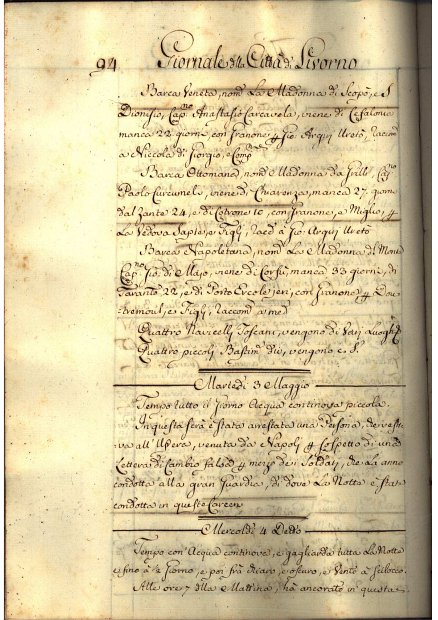 94 Giornale della Città di Livorno
Barca Veneta, nom.ª La Madonna di Scopò, e S.
Dionisio, Cap.no Anastasio Carcavela, viene di Cefalonia
manca 22 giorni, con Granone p Gio. Arqui Ureto, raccom.
a Niccola di Giorgio, e Comp.
Barca Ottomana, nom. Madonna da Grilli, Cap.no
Paolo Curcumeli, viene di Chiarenza, manca 27 giorni
dal Zante 24, e di Cotrone 10, con Granone, e Miglio, p
La Vedova e Figlj, racc. a Gio. Arqui Ureto
Barca Napoletana, nom. La Madonna di Monte
Cap.no Gio. di Majo, viene di Corfù, manca 33 giorni, di
Taranto 22, e di Porto Ercole jeri, con Granone p Dou-
tremoul, e Figlj, Raccom. a med.
Quattro Navicelli Toscani, vengono di Varj Luoghi
Quattro piccoli Bastim. div. vengono c. S.
Martedì 3 Maggio
Tempo tutto il Giorno Acqua continova piccola.
In questa sera è stata arrestata una Persona, che resta-
va all' Opera, venuta da Napoli p sospetto di una
Lettera di Cambio falsa p mezzo dei Soldati, che La anno
condotta alla gran Guardia, di dove La Notte è stata
condotta in queste Carceri
Mercoldì 4 Detto
Tempo con Acqua continova, e gagliarda tutta La Notte
e fino a ½ Giorno, e poi frà chiaro, e oscuro, e Vento a Scilocco.
Alle ore 7 della Mattina, hà ancorato in questa